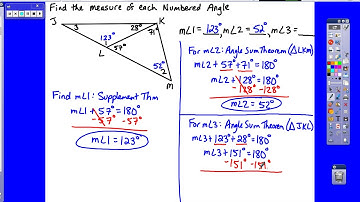 Find the measure of each Numbered Angle
J
K
3
28°
71°
123°
1
57°
L
52°
2
M
m∠1 = 123°, m∠2 = 52°, m∠3 = ___
Find m∠1: Supplement Thm
m∠1 + 57° = 180°
-57° -57°
m∠1 = 123°
For m∠2: Angle Sum Theorem (△LKM)
m∠2 + 57° + 71° = 180°
m∠2 + 128° = 180°
-128° -128°
m∠2 = 52°
For m∠3: Angle Sum Theorem (△JKL)
m∠3 + 123° + 28° = 180°
m∠3 + 151° = 180°
-151° -151°